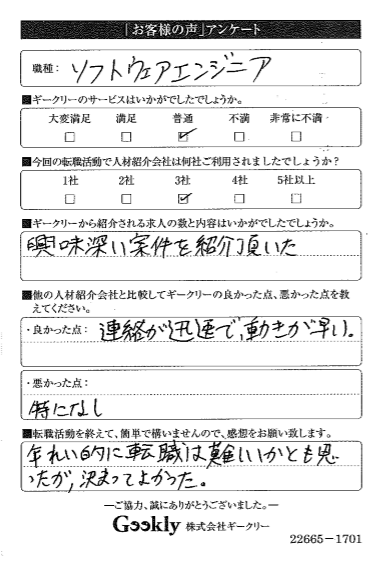 「お客様の声」アンケート
職種： ソフトウェアエンジニア
■ギークリーのサービスはいかがでしたでしょうか。
大変満足 満足 普通 不満 非常に不満
□ □ ☑ □ □
■今回の転職活動で人材紹介会社は何社ご利用されましたでしょうか？
1社 2社 3社 4社 5社以上
□ □ ☑ □ □
■ギークリーから紹介される求人の数と内容はいかがでしたでしょうか。
興味深い案件を紹介頂いた
■他の人材紹介会社と比較してギークリーの良かった点、悪かった点を教
えてください。
・良かった点： 連絡が迅速で、動きが早い。
・悪かった点：
特になし
■転職活動を終えて、簡単で構いませんので、感想をお願い致します。
年れい的に転職は難しいかとも思
ったが、決まってよかった。
―ご協力、誠にありがとうございました。―
Geekly 株式会社ギークリー
22665-1701